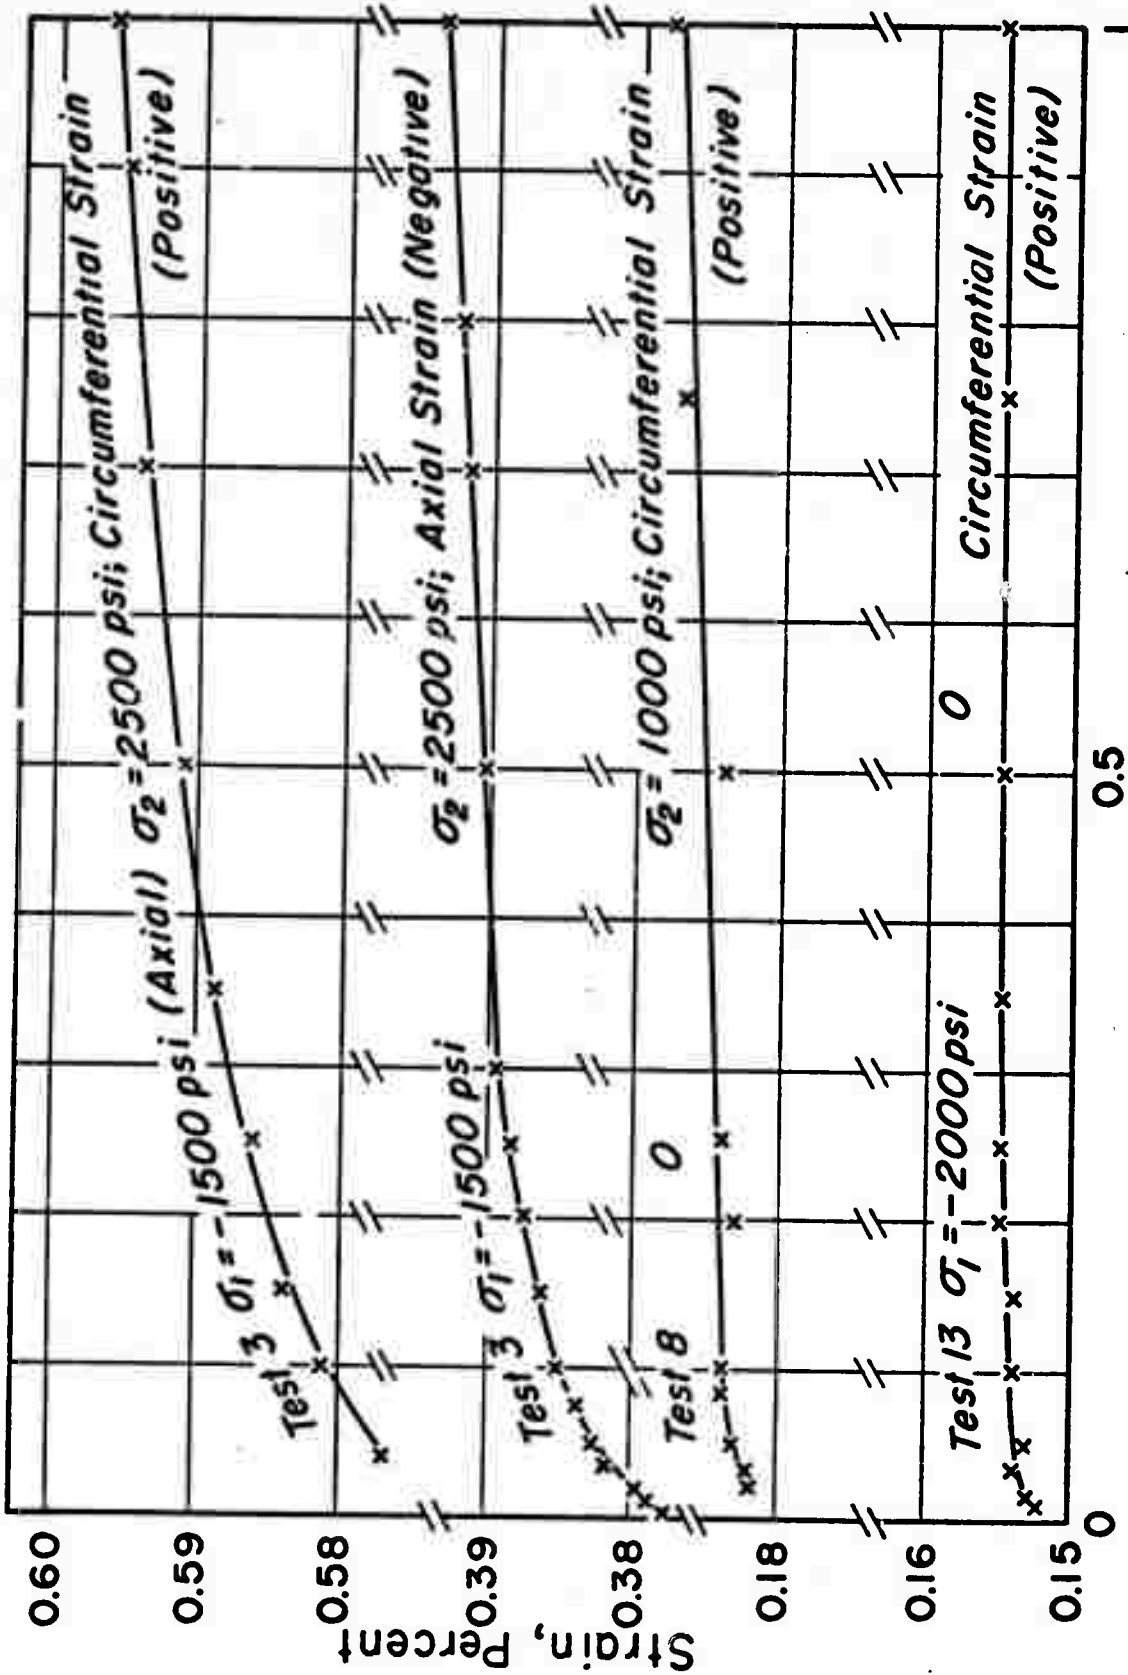 Strain, Percent
0.60
0.59
0.58
0.39
0.38
0.18
0.16
0.15
0
0.5
Test 3 σ1 = -1500 psi (Axial) σ2 = 2500 psi; Circumferential Strain
(Positive)
Test 3 σ1 = -1500 psi σ2 = 2500 psi; Axial Strain (Negative)
Test 8 0 σ2 = 1000 psi; Circumferential Strain
(Positive)
Test 13 σ1 = -2000 psi 0 Circumferential Strain
(Positive)